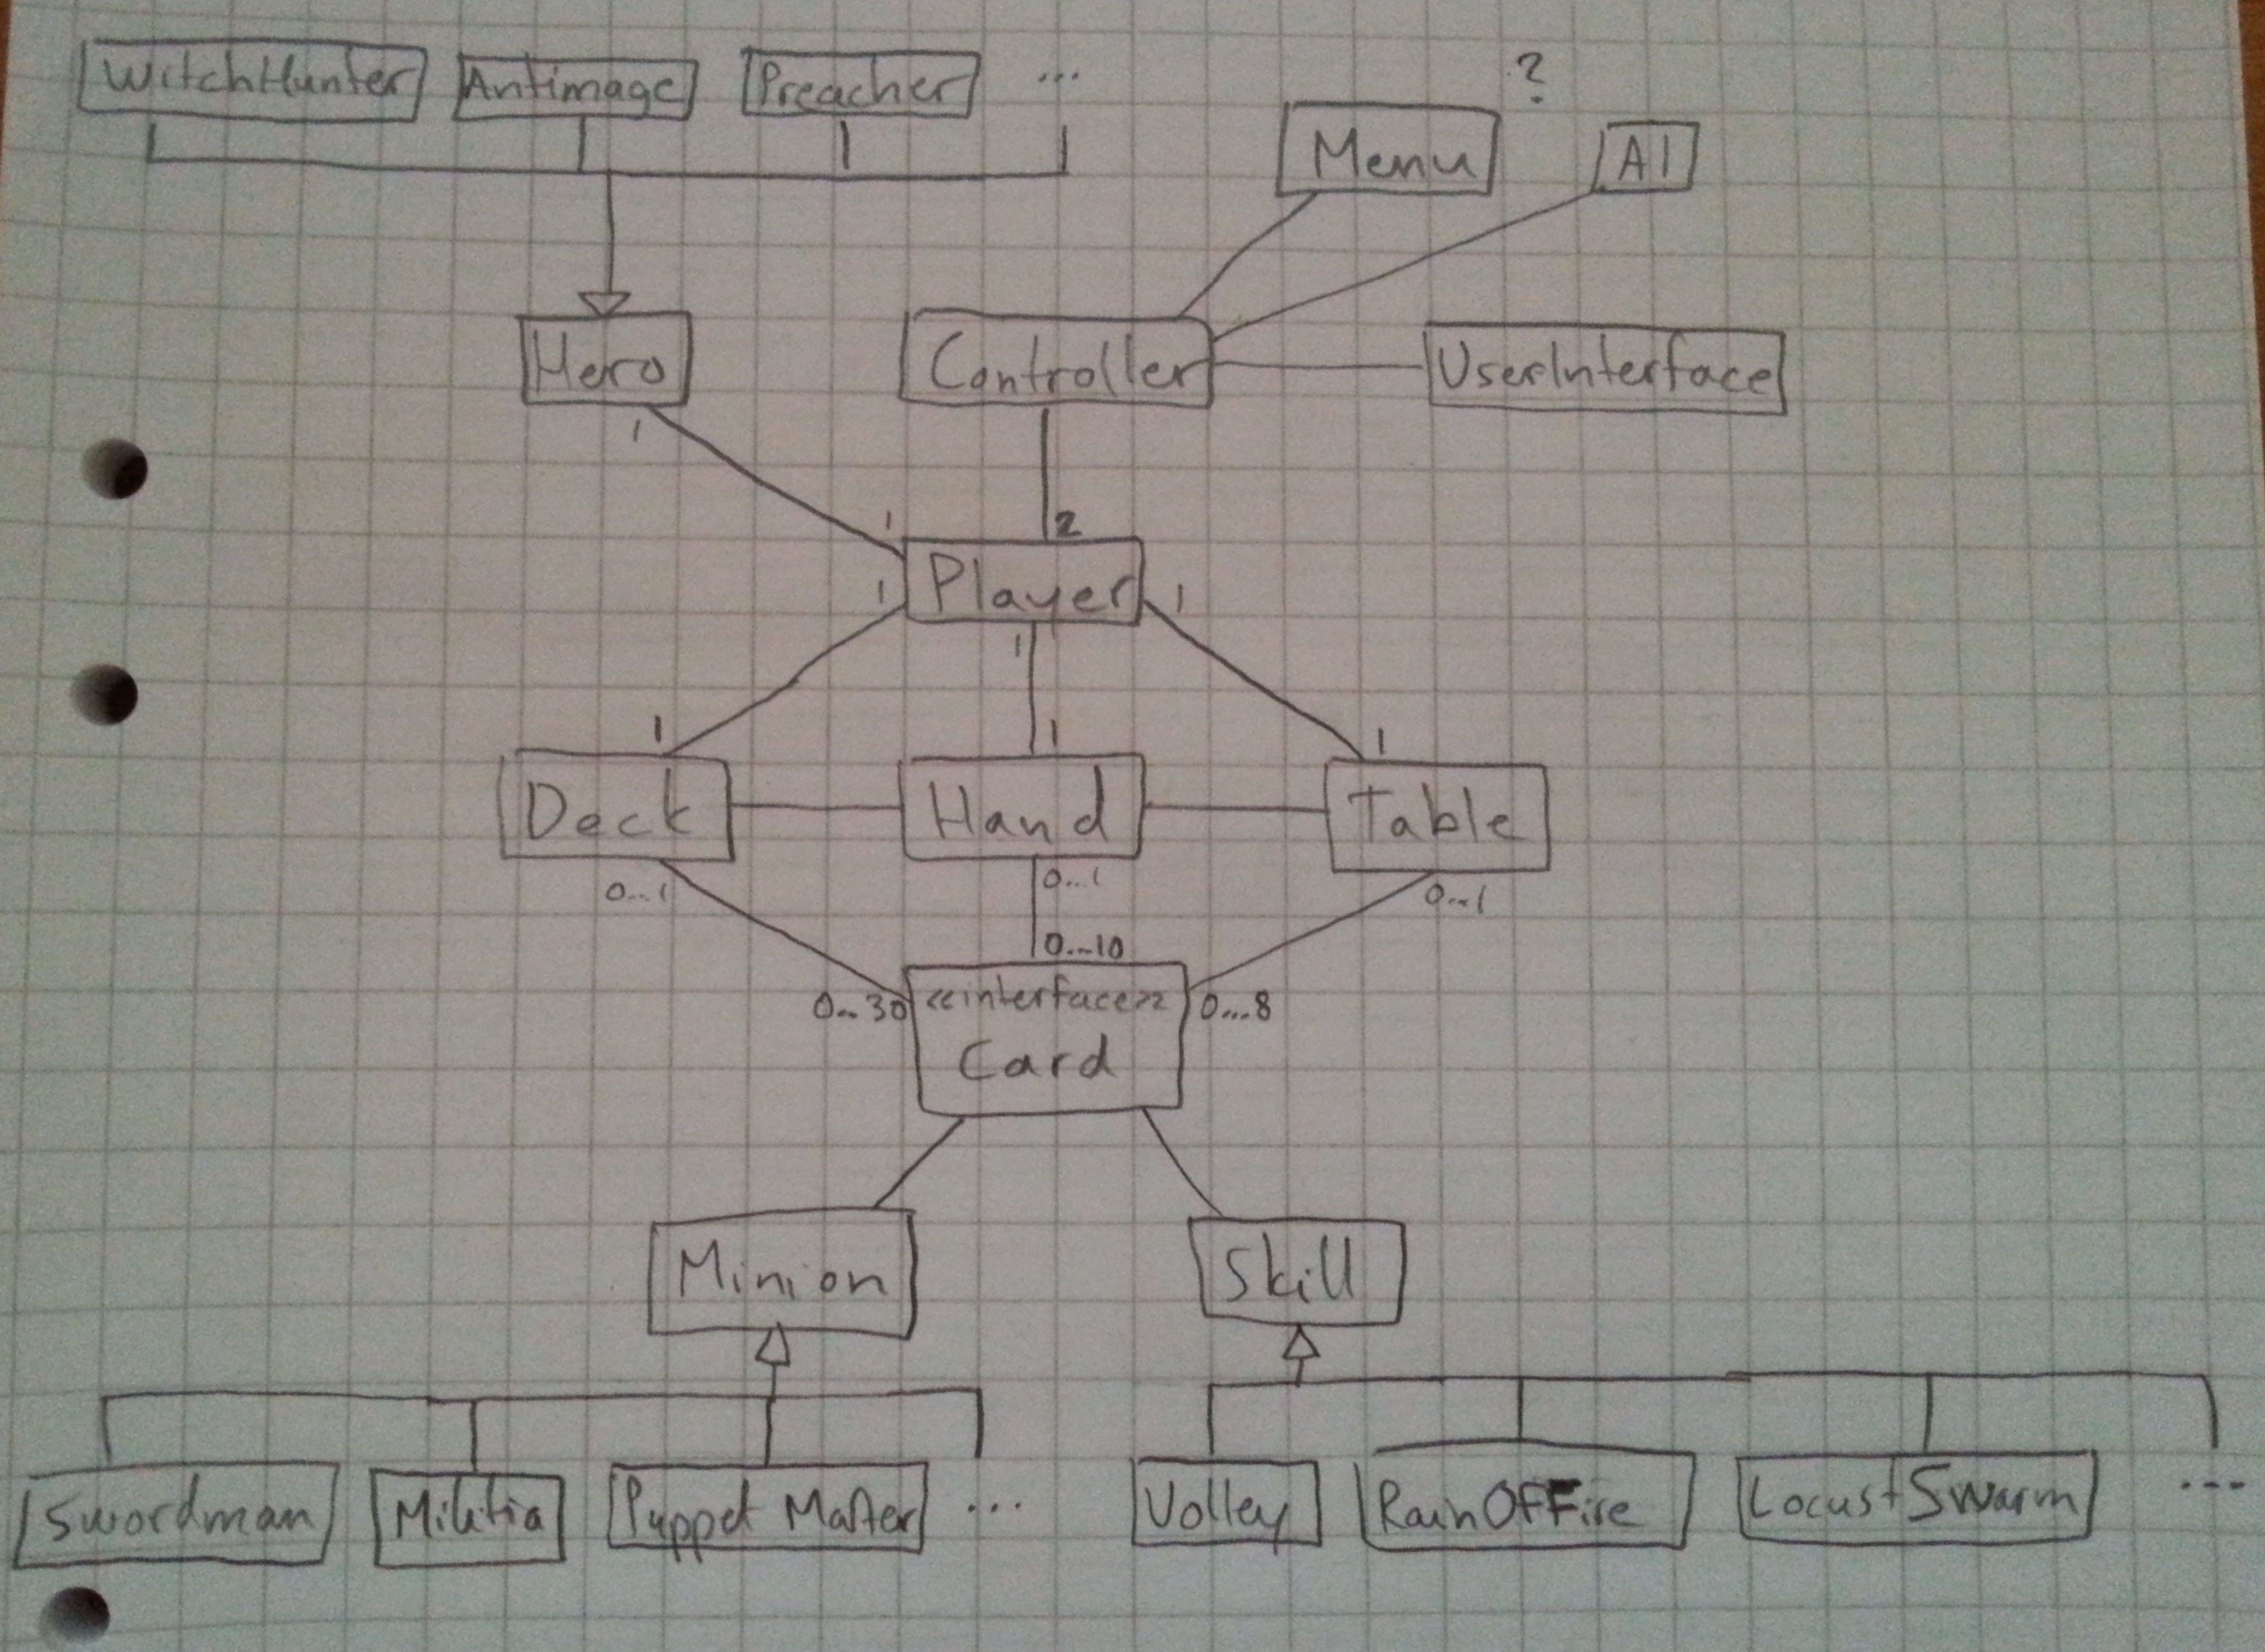 WitchHunter
Antimage
Preacher
...
?
Menu
AI
Hero
Controller
UserInterface
1
1
2
Player
1
1
1
1
1
1
Deck
Hand
Table
0...1
0...1
0...1
0...10
0...30
<<interface>>
0...8
Card
Minion
Skill
Swordman
Militia
Puppet Master
...
Volley
RainOfFire
LocustSwarm
...